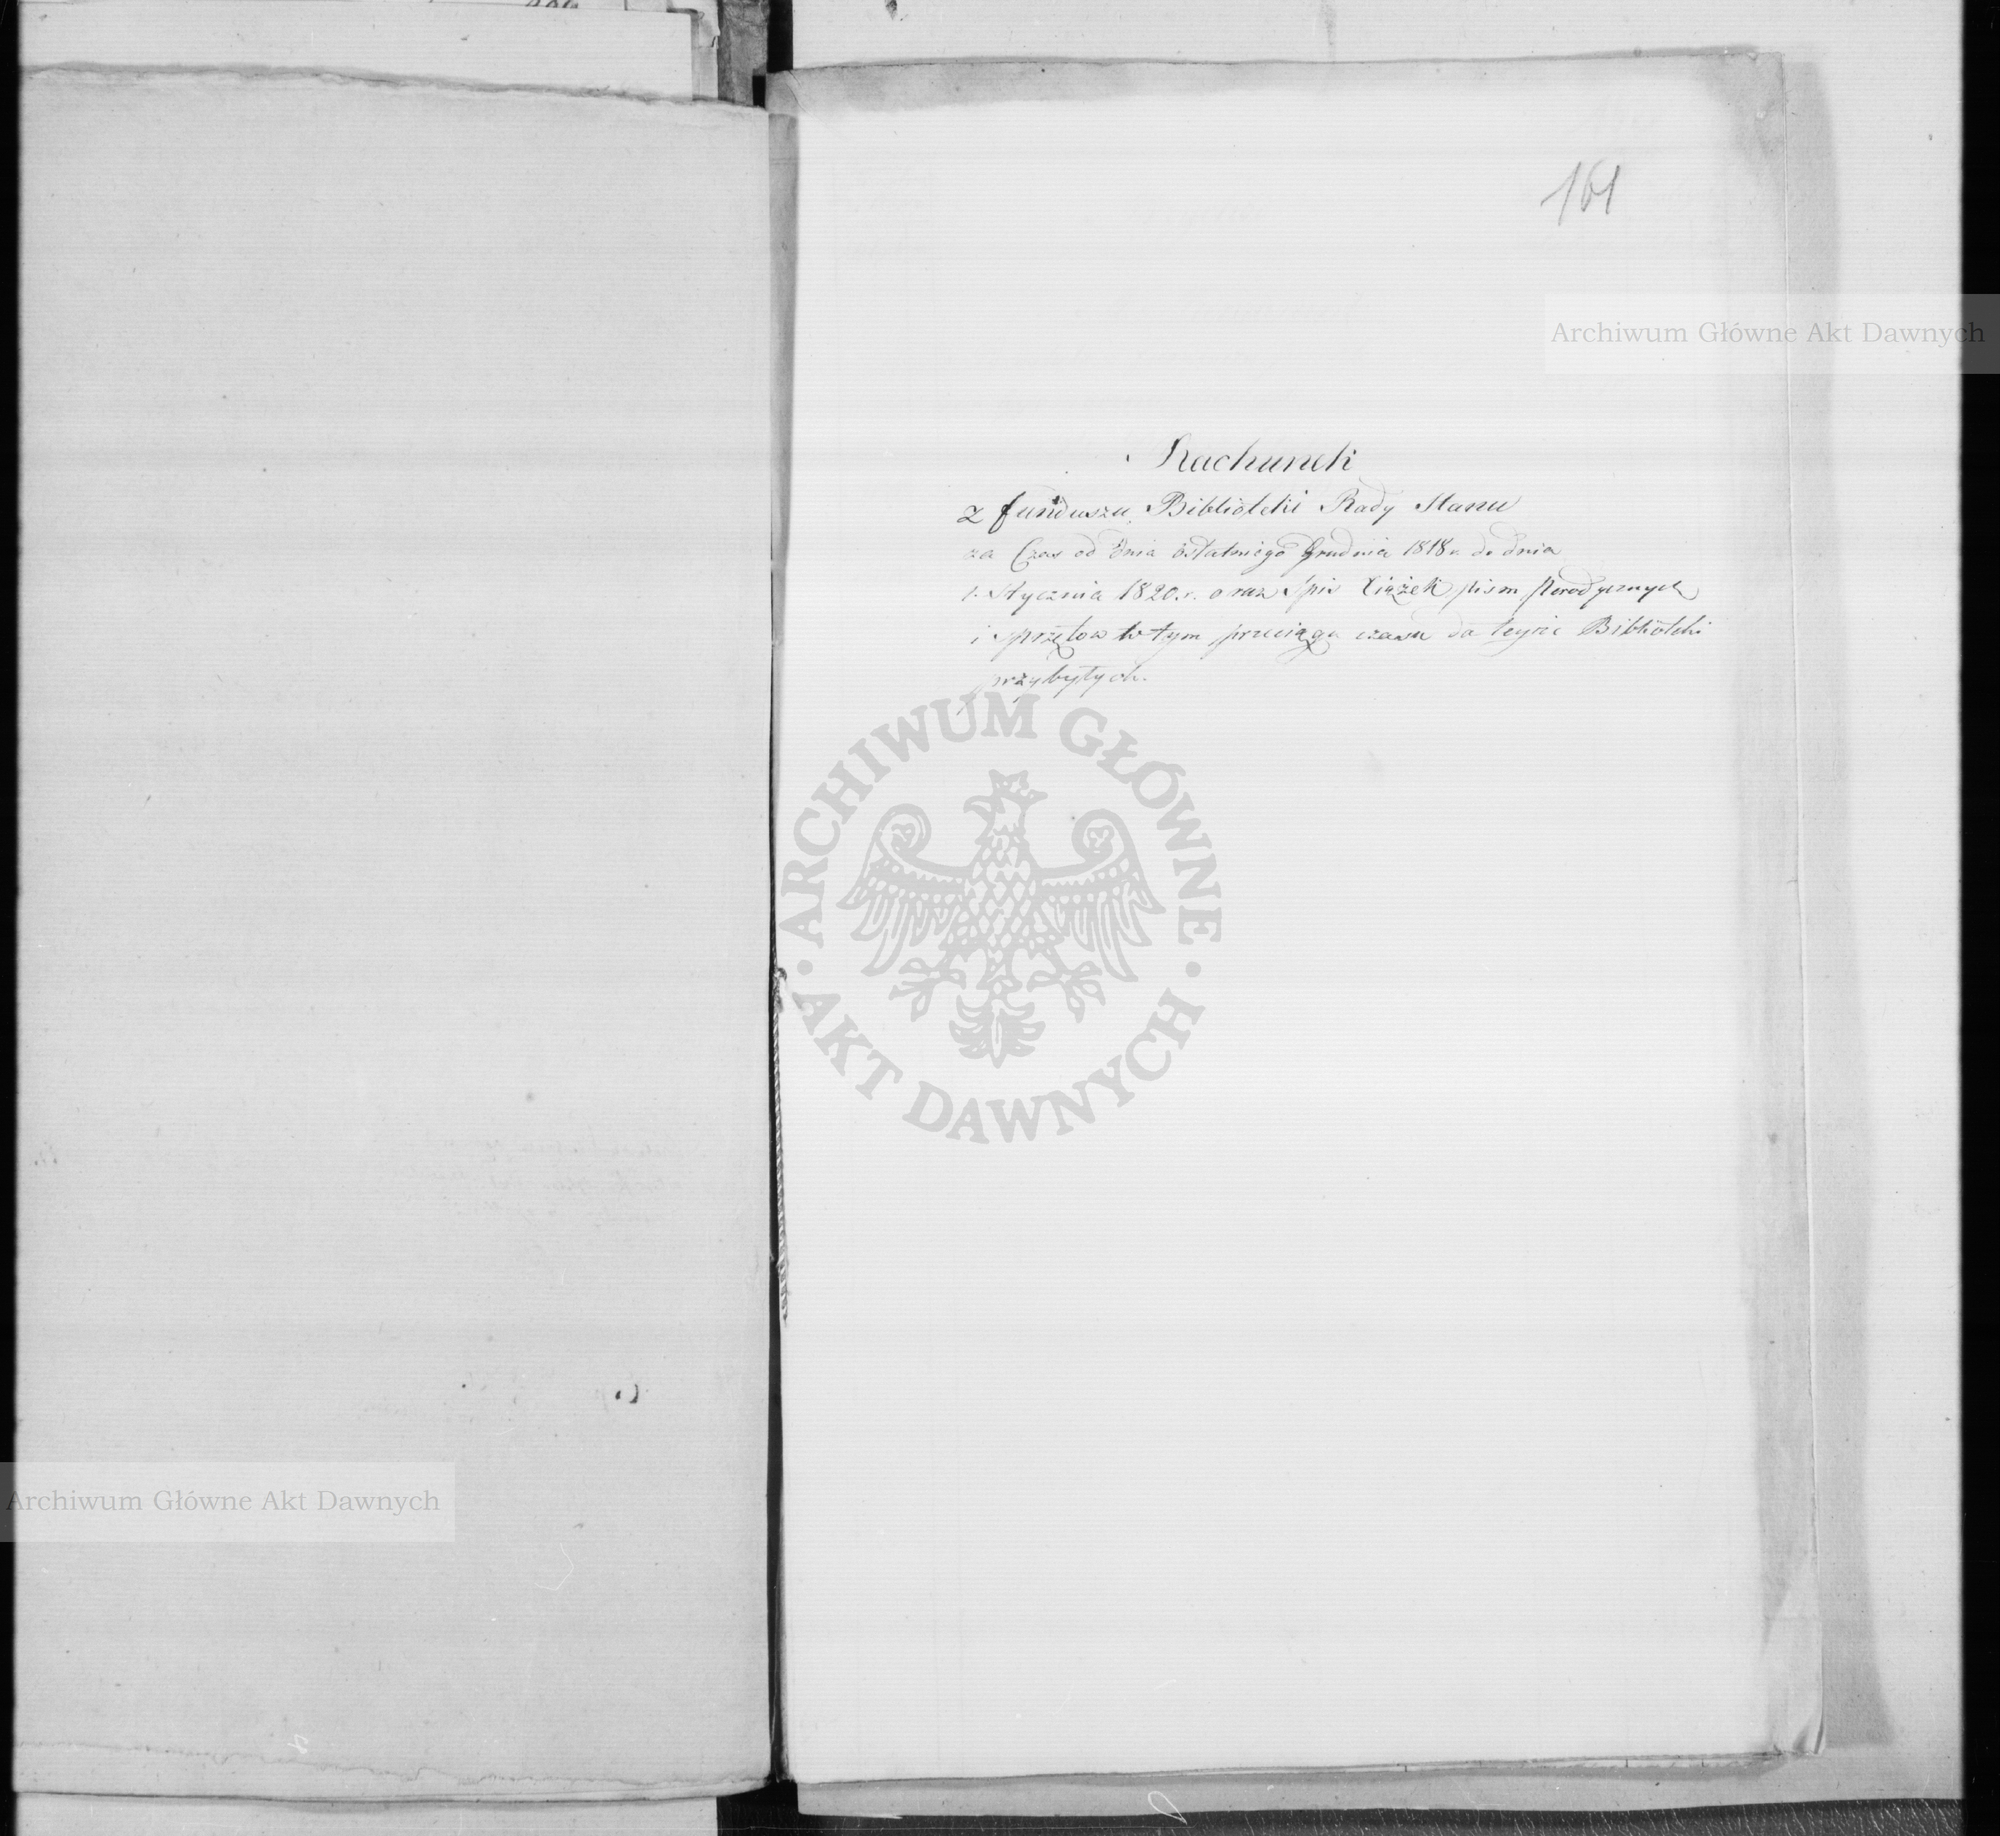 161
Rachunek
z funduszu Biblioteki Rady Stanu
za Czas od dnia ostatniego Grudnia 1818 r. do dnia
1. Stycznia 1820. r. oraz Spis Xiążek pism perodycznych
i sprzętow w tym przeciągu czasu do teyże Biblioteki
przybyłych.
Archiwum Główne Akt Dawnych
ARCHIWUM GŁÓWNE AKT DAWNYCH
Archiwum Główne Akt Dawnych